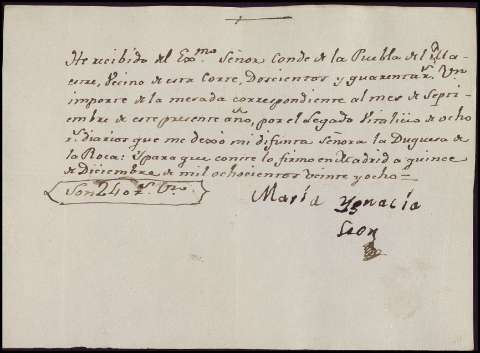 He recibido del Exmo. Señor Conde de la Puebla del Mª-
estre, Vecino de esta Corte, Doscientos y quarenta rs. Vn
importe de la mesada correspondiente al mes de Septi-
embre de este presente año, por el Legado Vitalicio de ocho
rs. diarios que me dexó mi difunta Señora la Duquesa de
la Roca: Y para que conste lo firmo en Madrid a quince
de Diciembre de mil ochocientos veinte y ocho=
Son 240 rs. Vn.
María Ygnacia
Leon